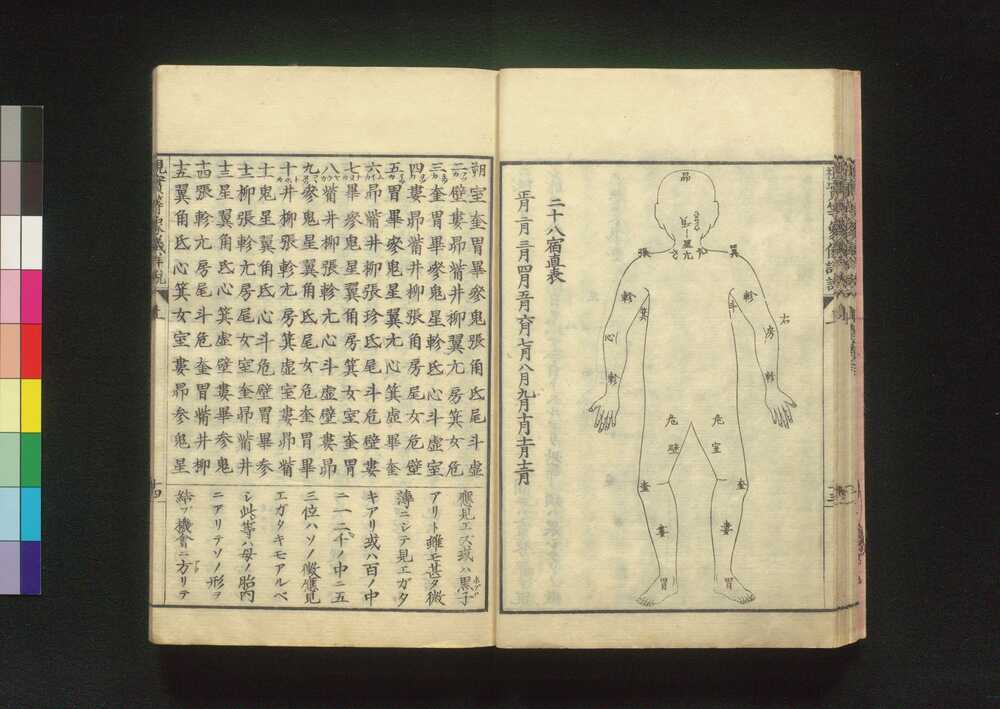 昴
張
翼
亢
軫
軫
箕
斗
右
心
房
軫
軫
危
危
壁
室
奎
奎
婁
婁
胃
胃
二十八宿直表
正月二月三月四月五月六月七月八月九月十月十一月十二月
朔室奎胃畢參鬼張角氐尾斗虛
二壁婁昴觜井柳翼亢房箕女危
三奎胃畢參鬼星軫氐心斗虛室
四婁昴觜井柳張角房尾女危壁
五胃畢參鬼星翼亢心箕虛畢奎
六昴觜井柳張珍氐尾斗危壁婁
七畢參鬼星翼角房箕女室奎胃
八觜井柳張軫亢心斗虛壁婁昴
九參鬼星翼角氐尾女危奎胃畢
十井柳張軫亢房箕虛室婁昴觜
十一鬼星翼角氐心斗危壁胃畢参
十二柳張軫亢房尾女室奎昴觜井
十三星翼角氐心箕虛壁婁畢参鬼
十四張軫亢房尾斗危奎胃觜井柳
十五翼角氐心箕女室婁昴参鬼星
應見エズ或ハ黒子
アリト雖モ甚タ微
薄ニシテ見エガタ
キアリ或ハ百ノ中
ニ一二千ノ中ニ五
三位ハソノ徴應見
エガタキモアルベ
シ此等ハ母ノ胎内
ニアリテソノ形ヲ
結ブ機會ニ方リテ